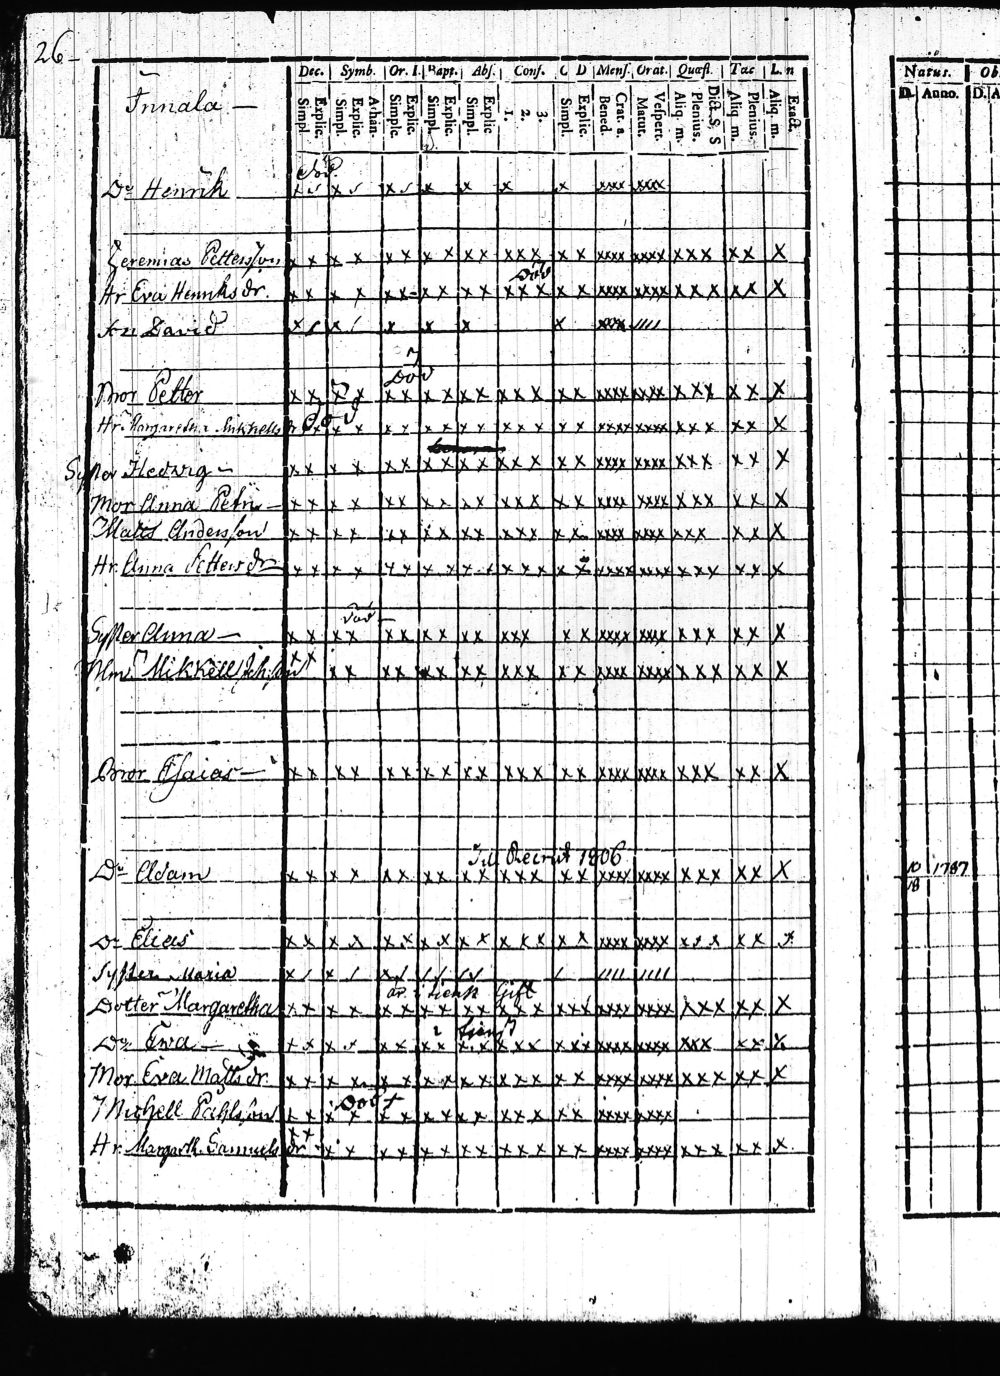 26
Dec. Symb. Or. I. Bapt. Abs. Conf. C D Mens. Orat. Quæst. Tac L. n
Simpl. Explic. Simpl. Explic. Athan. Simplc. Explic. Simpl. Explic. Simpl. Explic 1. 2. 3. Simpl. Explic. Bened. Grat. a. Matut. Vespert. Aliq. m. Plenius. Dict. S. S Aliq m. Plenius. Aliq. m. Exact.
Innala
död
Dr Henrik
Jeremias Pettersson
död
Hr Eva Henriksdr.
Son David
Död
Bror Petter
Död
Hr Margareta Mikkelsdr
Syster Hedvig
Mor Anna Petr
Matts Andersson
Hr. Anna Pettersdr
död
Syster Anna
Mikkell Joh:son
Bror Esaias
Till Recrut 1806
Dr Adam
Dr Elias
Syster Maria
är i tienst Gift
Dotter Margaretha
i tienst
Dr Eva
Mor Eva Mattsdr
Död
Michell Påhlsson
Hr. Margareth. Samuelsdr
Natus. Ob
D. Anno. D. A
10 1787
18